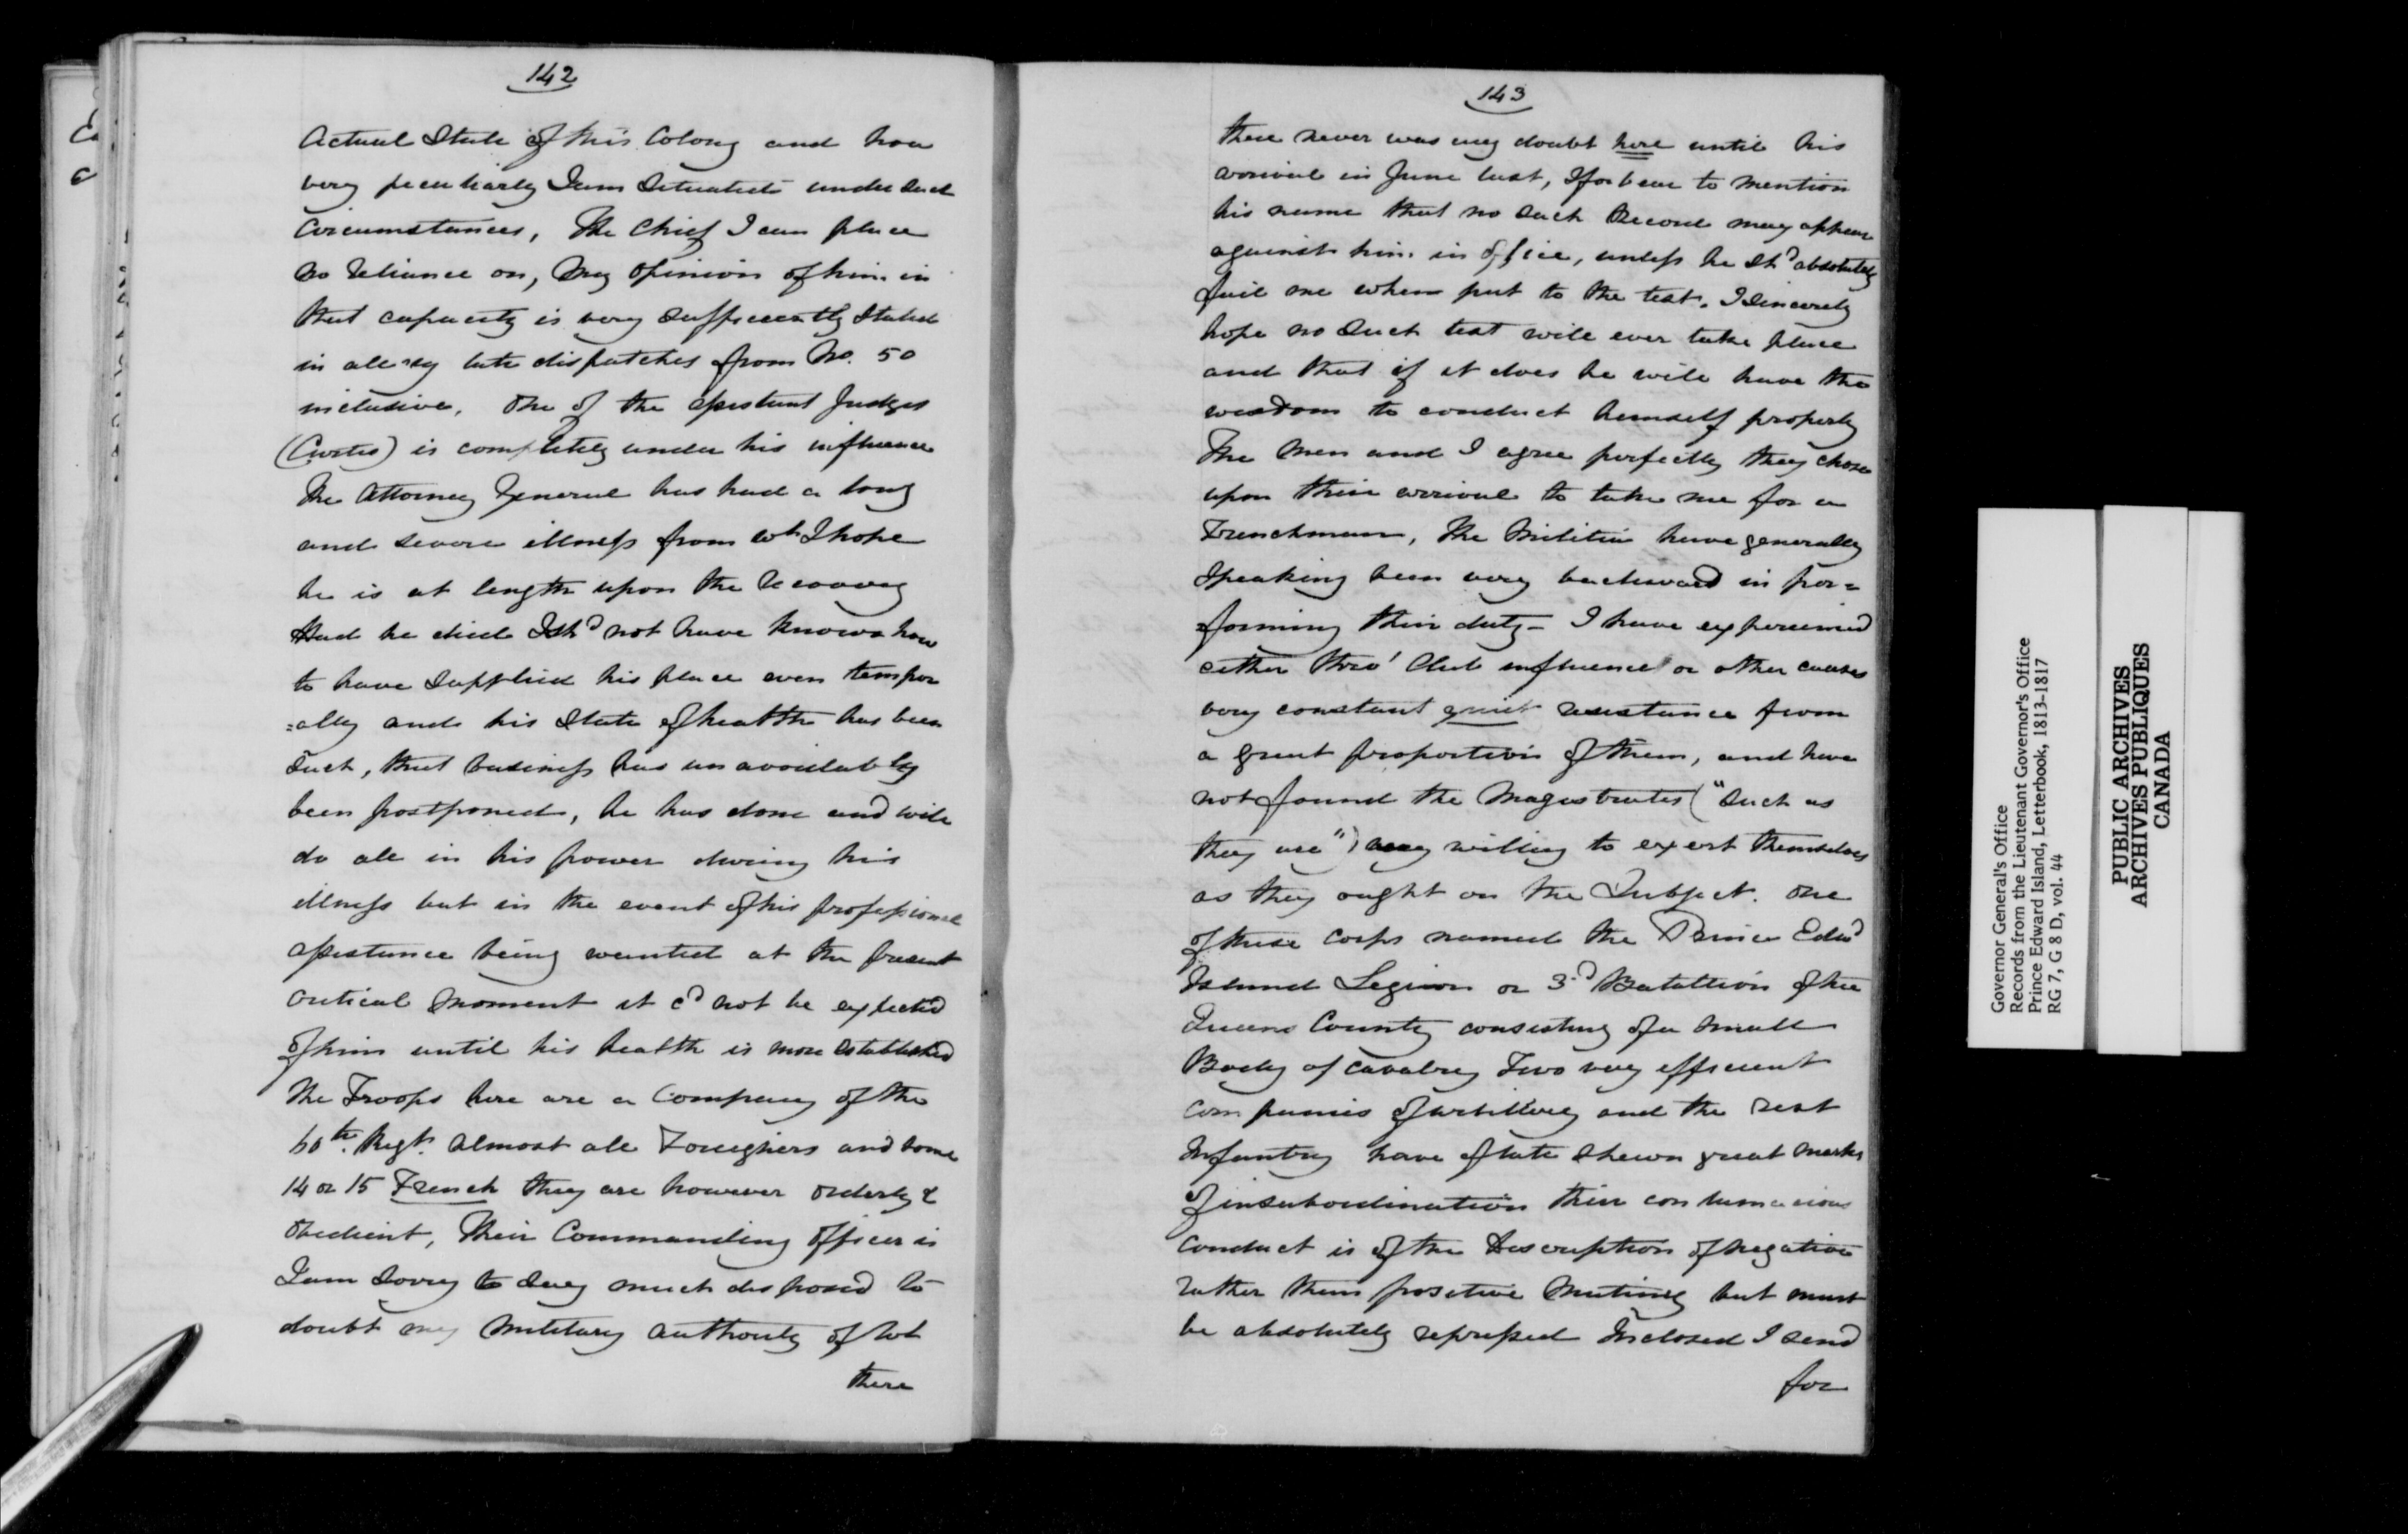 142
Actual State of this Colony and how
very peculiarly I am Situated under such
Circumstances, The Chief I can place
no reliance on, My opinion of him in
that capacity is very sufficiently Stated
in all my late dispatches from No. 50
inclusive. One of the assistant Judges
(Curtis) is completely under his influence
The Attorney General has had a long
and severe illness from wh I hope
he is at length upon the recovery
Had he died I shd not have known how
to have supplied his place even tempor
=ally and his State of health has been
such, that business has unavoidably
been postponed, he has done and will
do all in his power during his
illness but in the event of his professional
assistance being wanted at the present
critical moment it cd not be expected
of him until his health is more established
The Troops here are a Company of the
60th Regt. almost all Foreigners and some
14 or 15 French they are however orderly &
obedient, Their Commanding Officer is
I am sorry to say much disposed to
doubt my Military authority of wh
there
143
there never was any doubt here until his
arrival in June last, I forbear to mention
his name that no such Record may appear
against him in office, unless he shd absolutely
fail me when put to the test. I sincerely
hope no such test will ever take place
and that if it does he will have the
wisdom to conduct himself properly
The Men and I agree perfectly they chose
upon their arrival to take me for a
Frenchman, The Militia have generally
speaking been very backward in per=
forming their duty - I have experienced
either thro' Club influence or other causes
very constant quiet resistance from
a great proportion of them, and have
not found the Magistrates ("such as
they are") any willing to exert themselves
as they ought on the Subject. One
of these corps named the Prince Edwd
Island Legion or 3d Batallion of the
Queens County consisting of a small
Body of cavalry Two very efficient
companies of artillery and the rest
Infantry have of late shewn great marks
of insubordination their contumacious
conduct is of the Description of negative
rather than positive Mutiny but must
be absolutely repressed Inclosed I send
for
Governor General's Office
Records from the Lieutenant Governor's Office
Prince Edward Island, Letterbook, 1813-1817
RG 7, G 8 D, vol. 44
PUBLIC ARCHIVES
ARCHIVES PUBLIQUES
CANADA